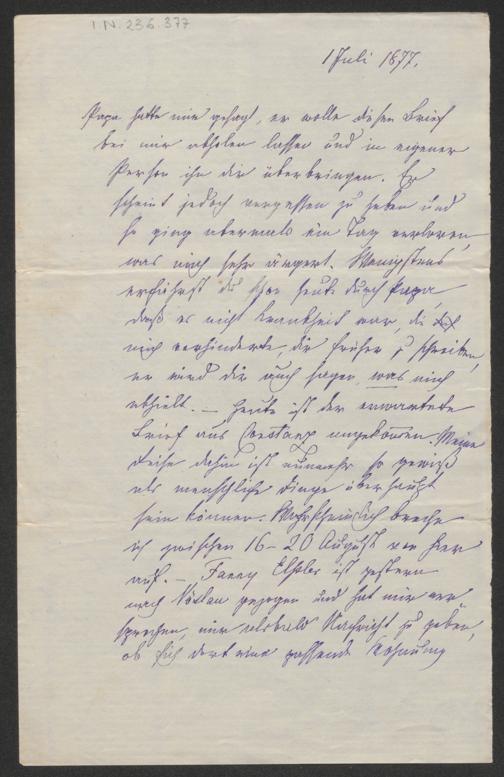 I.N. 236.377
1 Juli 1877.
Papa hatte mir gesagt, er wolle diesen Brief
bei mir abholen lassen und in eigener
Person ihn dir überbringen. Er
scheint jedoch vergessen zu haben und
so ging abermals ein Tag verloren,
was mich sehr ärgert. Wenigstens
erfährst du heute durch Papa,
daß es nicht Krankheit war, die
mich verhinderte, dir früher zu schreiben,
er wird dir auch sagen, was mich
abhielt. — Heute ist der erwartete
Brief aus Constanz angekommen. Meine
Reise dahin ist nunmehr so gewiß
als menschliche Dinge überhaupt
sein können. Wahrscheinlich breche
ich zwischen 16–20 August von hier
auf. — Fanny Elßler ist gestern
nach Vöslau gezogen und hat mir ver
sprechen, mir alsbald Nachricht zu geben,
ob sich dort eine passende Wohnung